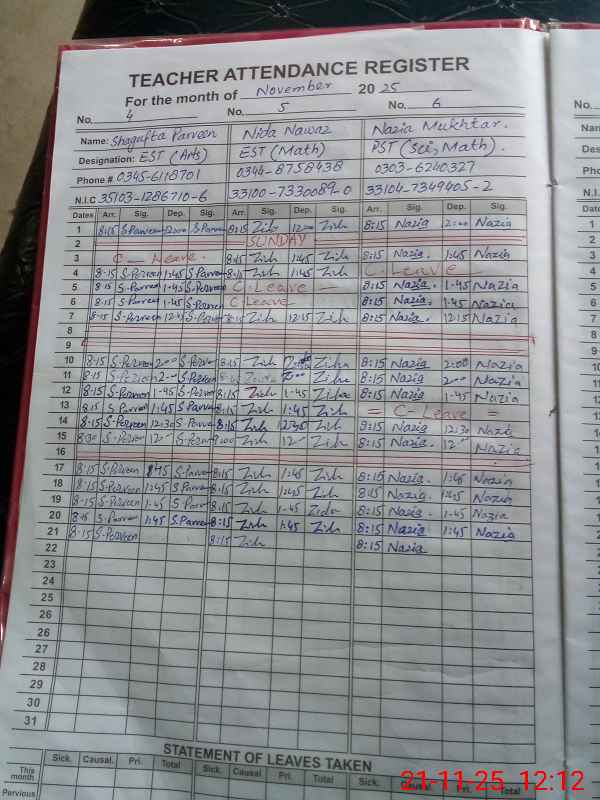 TEACHER ATTENDANCE REGISTER
For the month of November 2025
No. 4 No. 5 No. 6
Name: Shagufta Parveen Nida Nawaz Nazia Mukhtar.
Designation: EST (Arts) EST (Math) PST (Sci, Math).
Phone # 0345-6118701 0344-8758438 0303-6240327
N.I.C 35103-1286710-6 33100-7330089-0 33104-7349405-2
Dates Arr. Sig. Dep. Sig. Arr. Sig. Dep. Sig. Arr. Sig. Dep. Sig.
1 8:15 S.Parveen 12:00 S.Parveen 8:15 12:00 8:15 Nazia 2:00 Nazia
2 SUNDAY
3 C- Leave. 8:15 1:45 8:15 Nazia. 1:45 Nazia
4 8-15 S.Parveen 1:45 S.Parveen 8:15 1:45 C-Leave
5 8-15 S-Parveen 1-45 S-Parveen C-Leave 8:15 Nazia. 1-45 Nazia
6 8-15 S-Parveen 1-45 S-Parveen C-Leave 8:15 Nazia. 1-45 Nazia
7 8-15 S-Parveen 12-15 S.Parveen 8:15 12:15 8:15 Nazia. 12:15 Nazia
8
9
10 8-15 S-Parveen 2-00 S-Parveen 8:15 8:15 Nazia 2:00 Nazia
11 8-15 S-Parveen 2-00 S-Parveen 2:00 8:15 Nazia 2:00 Nazia
12 8-15 S-Parveen 1-45 S-Parveen 8:15 1-45 8:15 Nazia 1-45 Nazia
13 8-15 S-Parveen 1:45 S.Parveen 8:15 1:45 = C-Leave =
14 8-15 S-Parveen 12:30 S-Parveen 8:15 12:45 8:15 Nazia. 12:30 Nazia
15 8:30 S-Parveen 12:00 S-Parveen 9:00 12:00 8:15 Nazia. 12:00 Nazia
16
17 8-15 S.Parveen 1:45 S.Parveen 8:15 1:45 8:15 Nazia. 1:45 Nazia
18 8-15 S.Parveen 1:45 S.Parveen 8:15 1:45 8:15 Nazia. 1:45 Nazia
19 8-15 S-Parveen 1-45 S-Parveen 8:15 1-45 8:15 Nazia. 1-45 Nazia
20 8-15 S.Parveen 1:45 S.Parveen 8:15 1:45 8:15 Nazia. 1:45 Nazia
21 8-15 S-Parveen 8:15 8:15 Nazia
22
23
24
25
26
26
27
28
29
30
31
STATEMENT OF LEAVES TAKEN
Sick. Causal. Pri. Total Sick. Causal. Pri. Total Sick. Causal. Pri. Total
This month
Pervious
21-11-25 12:12
No.
Na
Des
Pho
N.I.
Dat
1
2
3
4
5
6
7
8
9